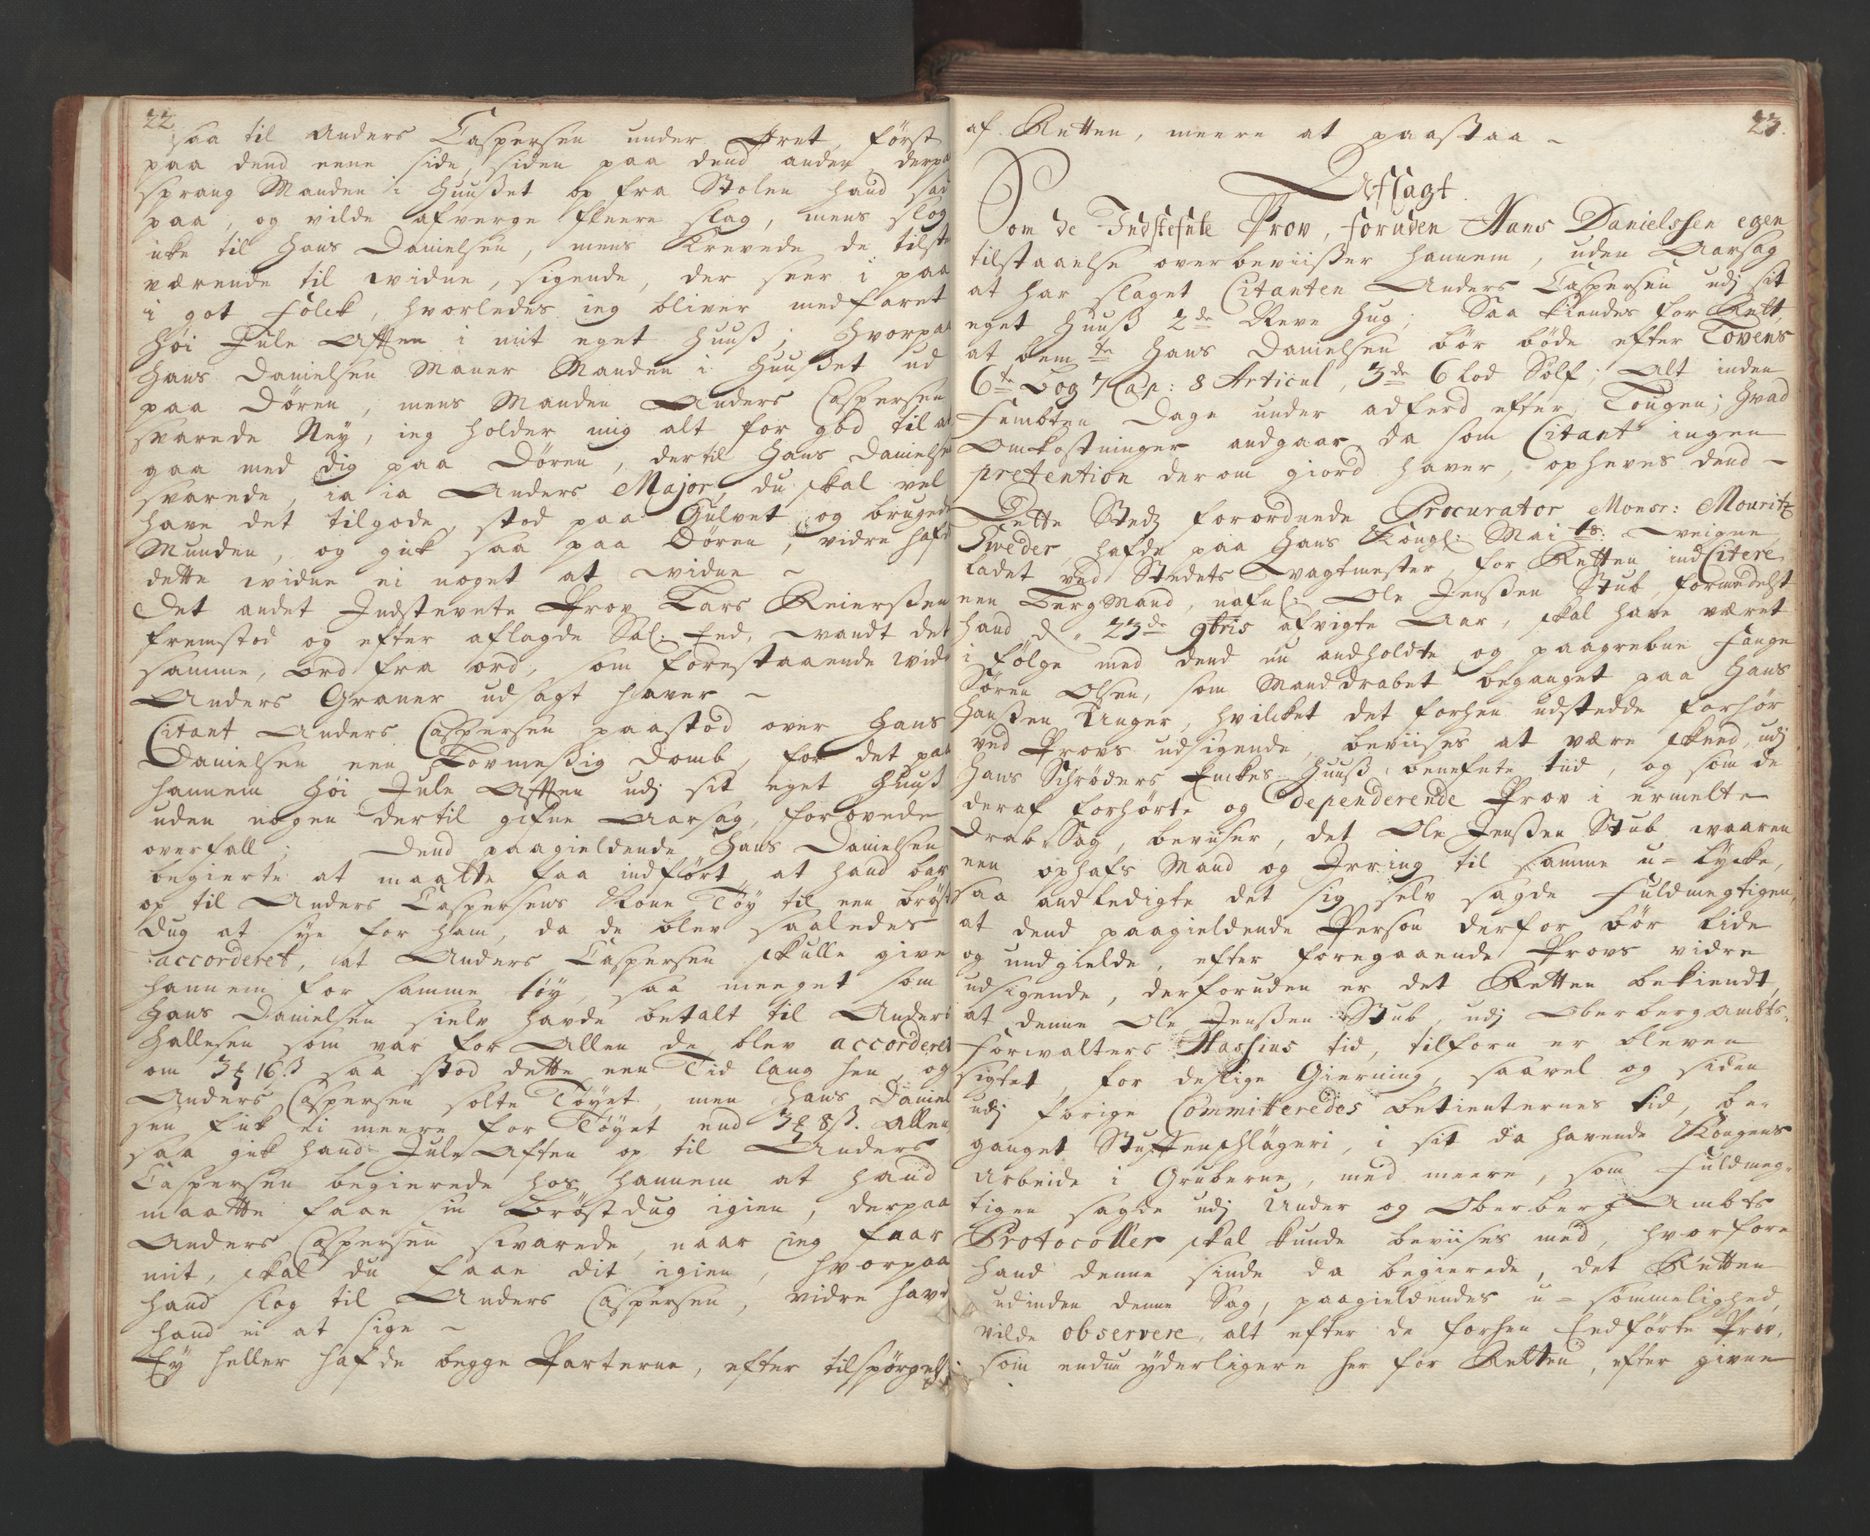 22.
saa til Anders Caspersen under Øret, først
paa dend eene side, siden paa dend anden derpaa
sprang Manden i Huußet op fra Stolen hand sad
paa, og vilde afverge fleere slag, mens slog
icke til Hans Danielsen, mens Krevede de tilste
værende til widne, sigende, der seer i paa
i got folck, hvorledes ieg bliver medfaret
Høi Jule Aften i mit eget Huuß; Hvorpaa
Hans Danielsen Maner Manden i Huußet ud
paa Døren, mens Manden Anders Caspersen
svarede Ney, ieg holder mig alt for god til at
gaa med dig paa Døren, dertil Hans Danielsen
svarede, ia ia Anders Major, du skal vel
have det tilgode, stod paa Gulvet og brugede
Munden, og gik saa paa Døren, vidre hafde
dette widne ei noget at widne ~
Det andet Indstevnte Prov Lars Reiersen
fremstod og efter aflagde Sal: Eed, wandt det
samme, ord fra ord, som forestaaende vidne
Anders Graner udsagt haver ~
Citant Anders Caspersen paastod over Hans
Danielsen een Lovmeßig domb, for det paa
hannem Høi Jule Aften udj sit eget Huuß
uden nogen dertil gifne Aarsag, forøvede
overfall; Dend paagieldende Hans Danielsen
begierte at maatte faa indført, at hand bar
op til Anders Caspersens Kone Tøy til een brøst
dug at sye for ham, da de blev saaledes
accorderet, at Anders Caspersen skulle give
hannem for samme tøy, saa meeget som
Hans Danielsen sielv havde betalt til Anders
Hallesen som var for Allen de blev accorderet
om 3 16ß saa stod dette een Tid lang hen, og
Anders Caspersen solte Tøyet, men Hans Daniel
sen fik ei meere for Tøyet end 3 8ß. Allen
saa gik hand Jule Aften op til Anders
Caspersen begierede hos hannem at hand
maatte faae sin Brøstdug igien, derpaa
Anders Caspersen svarede, naar ieg faar
mit, skal du faae dit igien, hvorpaa
hand slog til Anders Caspersen, vidre havde
hand ei at sige ~
Ey heller hafde begge Parterne, efter tilspørgelse
23.
af Retten, meere at paastaa ~
Afsagt
Som de Indstefnte Prov, foruden Hans Danielssen egen
tilstaaelse overbeviißer hannem, uden Aarsag
at har slaget Citanten Anders Caspersen udj sit
eget Huuß 2de Neve Hug; Saa Kiendes for Rett,
at bemte Hans Danielsen bør bøde efter Lovens
6te Bog 7 Cap: 8 Articul, 3de 6 Lod Sølf; Alt inden
Fembten Dage under adferd efter Lougen; Hvad
Omkostninger andgaar da som Citant ingen
pretention derom giord haver, opheves dend ~
Dette Stedz forordnede Procurator Monsr: Mouritz
Sweder, hafde paa Hans Kongl: Maits: weigne
ladet ved Stedets Vagtmester, for Retten ind Citere
een Berg Mand, nafnl: Ole Jenßen Stub, formedelst
hand d. 23de 9bris afvigte Aar, skal have været
i følge med dend nu andholdte og paagrebne Fange
Søren Olsen, som Manddrabet beganget paa Hans
Hanßen Unger, hvilcket det forhen udstedde forhør
ved Provs udsigende, beviises at være skeed, udj
Hans Schrøders Enckes Huuß, benefnte tiid, og som de
deraf forhørte og dependerende Prov i ermelte
Drabs Sag, beviiser, det Ole Jenßen Stub waaren
een ophafs Mand og Irring til samme u-lycke,
saa andledigte det sig selv sagde Fuldmegtigen,
at dend paagieldende Person derfor bør lide
og undgielde, efter foregaaende Provs vidre
udsigende, derforuden er det Retten bekiendt,
at denne Ole Jenßen Stub, udj Oberbergambts-
Forwalters Hassius tid, tilforn er bleven
sigtet, for deslige Gierning, saavel og siden
udj forige Committeredes betienternes tid, be-
ganget Stuffenschlägeri, i sit da havende Kongens
Arbeide i Gruberne, med meere, som Fuldmeg-
tigen sagde udj Under og Oberberg Ambts
Protocoller skal kunde beviises med, hvorfore
hand denne sinde da begierede, det Retten
udinden denne Sag, paagieldendes u-sømmelighed,
vilde observere, alt efter de forhen Eedførte Prov,
som endnu yderligere her for Retten, efter givne